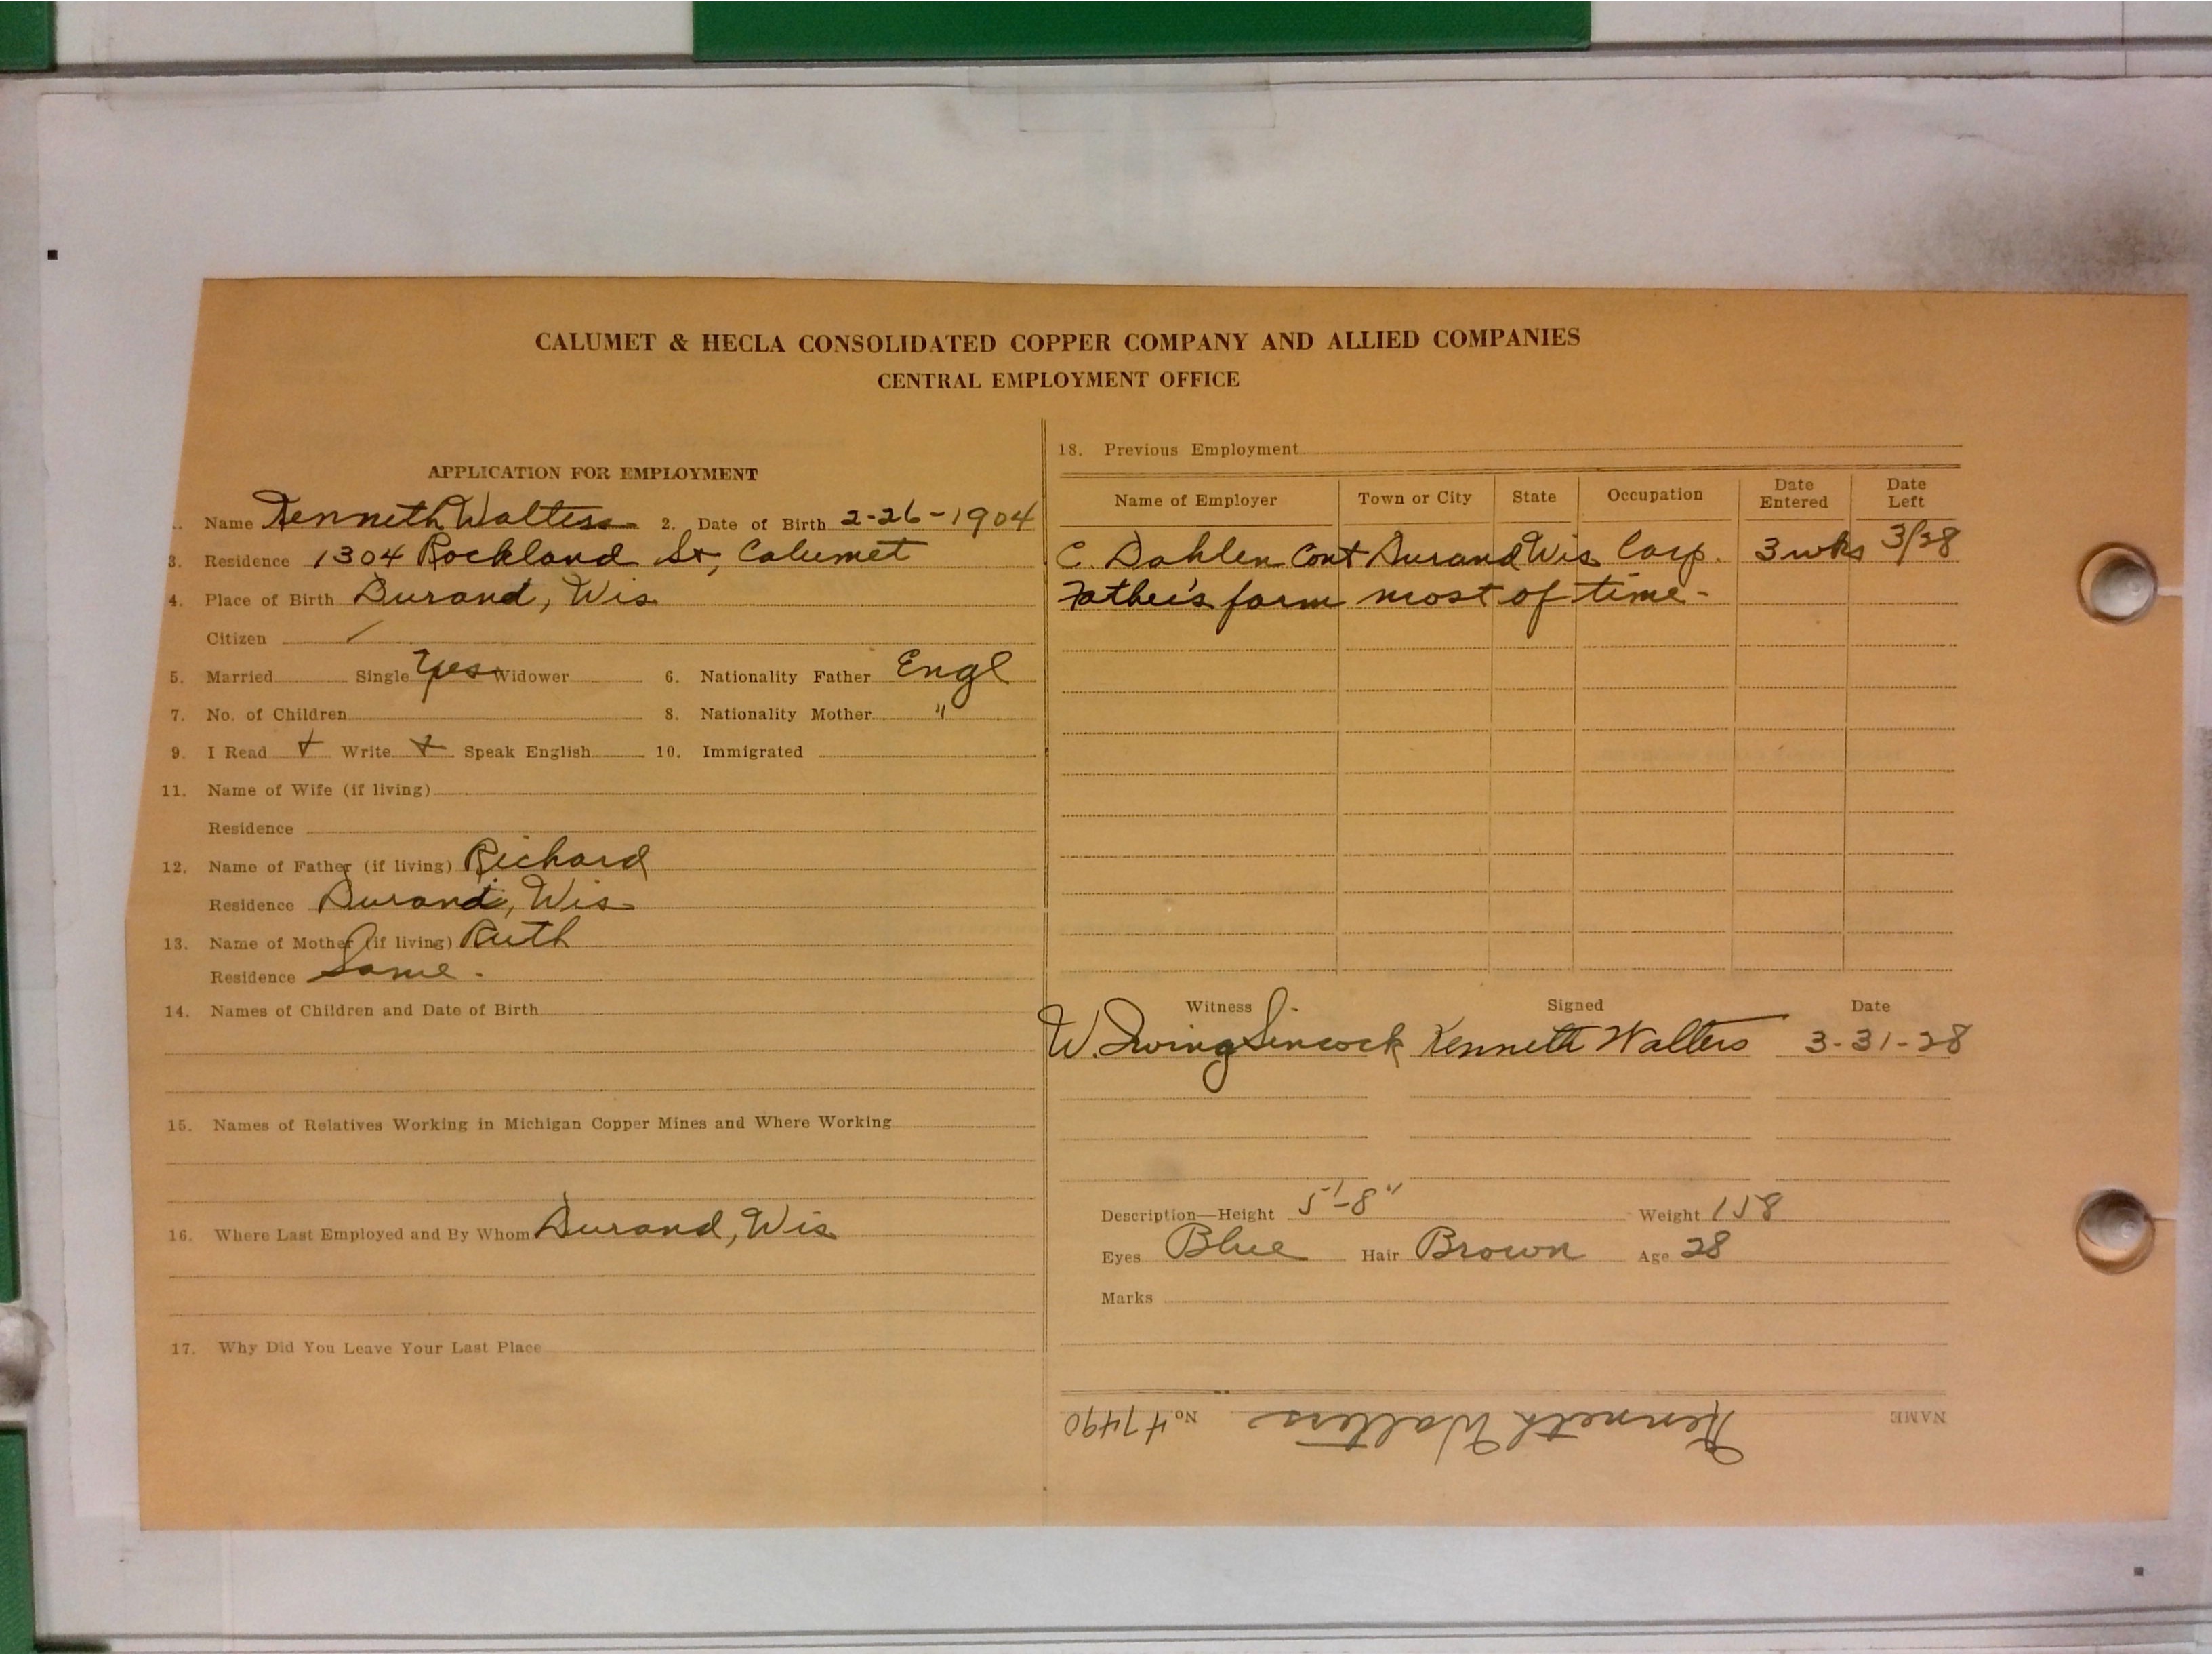 CALUMET & HECLA CONSOLIDATED COPPER COMPANY AND ALLIED COMPANIES
CENTRAL EMPLOYMENT OFFICE
APPLICATION FOR EMPLOYMENT
Name Kenneth Walters 2. Date of Birth 2-26-1904
3. Residence 1304 Rockland St, Calumet
4. Place of Birth Durand, Wis
Citizen /
5. Married Single Yes Widower 6. Nationality Father Engl
7. No. of Children 8. Nationality Mother "
9. I Read + Write + Speak English 10. Immigrated
11. Name of Wife (if living)
Residence
12. Name of Father (if living) Richard
Residence Durand, Wis
13. Name of Mother (if living) Ruth
Residence Same.
14. Names of Children and Date of Birth
15. Names of Relatives Working in Michigan Copper Mines and Where Working
16. Where Last Employed and By Whom Durand, Wis
17. Why Did You Leave Your Last Place
18. Previous Employment
Name of Employer Town or City State Occupation Date Entered Date Left
C. Dahlen Cont Durand Wis Carp. 3 wks 3/28
Father's farm most of time-
Witness Signed Date
W. Irving Sincock Kenneth Walters 3-31-28
Description—Height 5'-8" Weight 158
Eyes Blue Hair Brown Age 28
Marks
NAME Kenneth Walters No. 47490